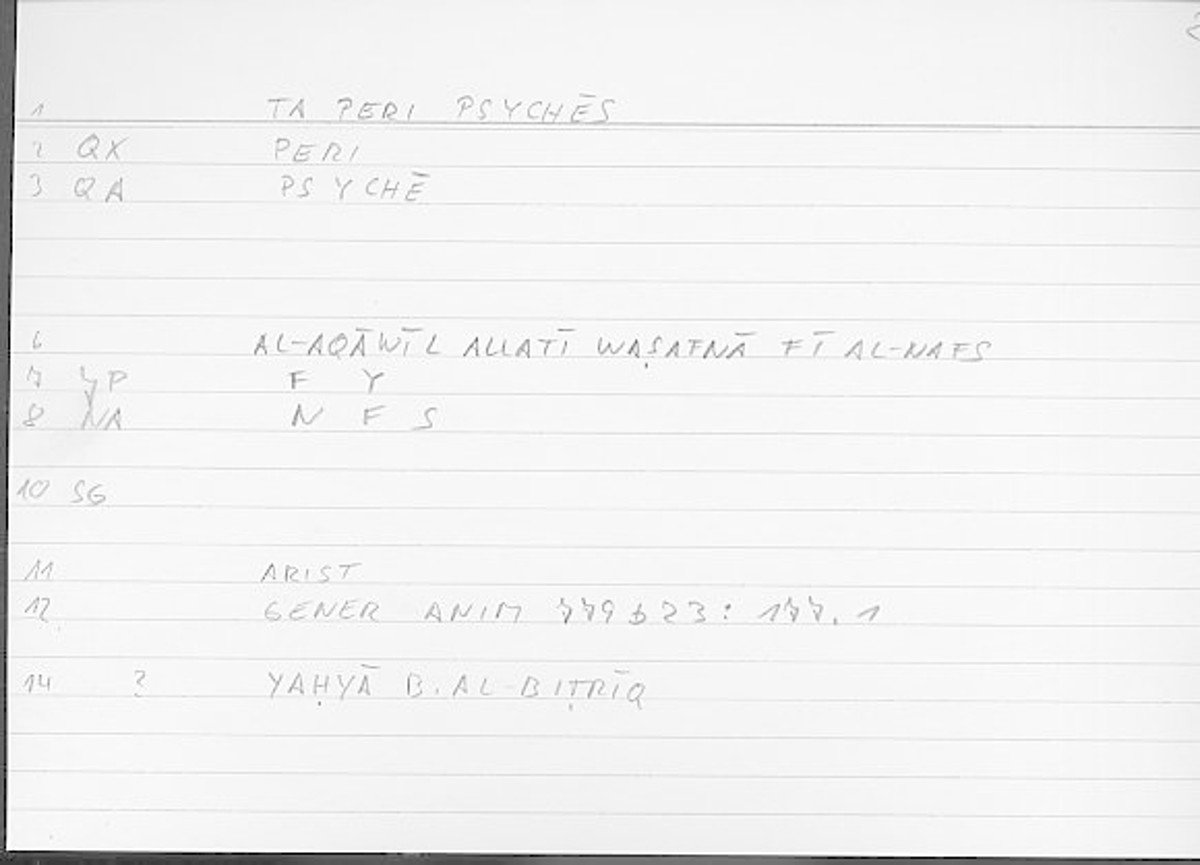 1 TA PERI PSYCHĒS
2 QX PERI
3 QA PSYCHĒ
6 AL-AQĀWĪL ALLATĪ WAṢAFNĀ FĪ AL-NAFS
7 YP F Y
8 NA N F S
10 SG
11 ARIST
12 GENER ANIM 779b23: 177.1
14 2 YAḤYĀ B. AL-BIṬRĪQ